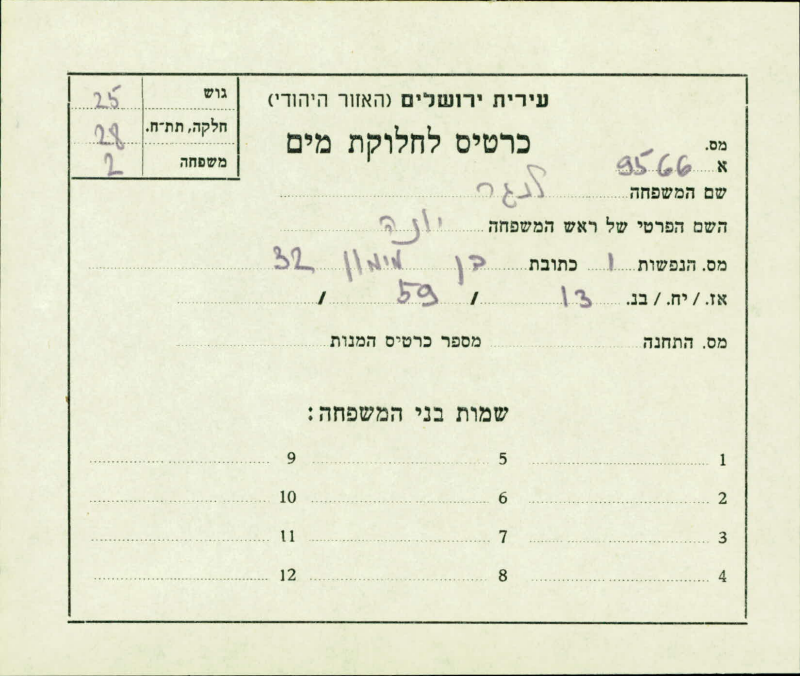 עירית ירושלים (האזור היהודי)
כרטיס לחלוקת מים
גוש 25
חלקה, תת-ח. 28
משפחה 2
מס.
א 9566
שם המשפחה לנגר
השם הפרטי של ראש המשפחה יונה
מס. הנפשות 1 כתובת בן מימון 32
אז. / יח. / בנ. 13 / 59 /
מס. התחנה מספר כרטיס המנות
שמות בני המשפחה:
1 5 9
2 6 10
3 7 11
4 8 12